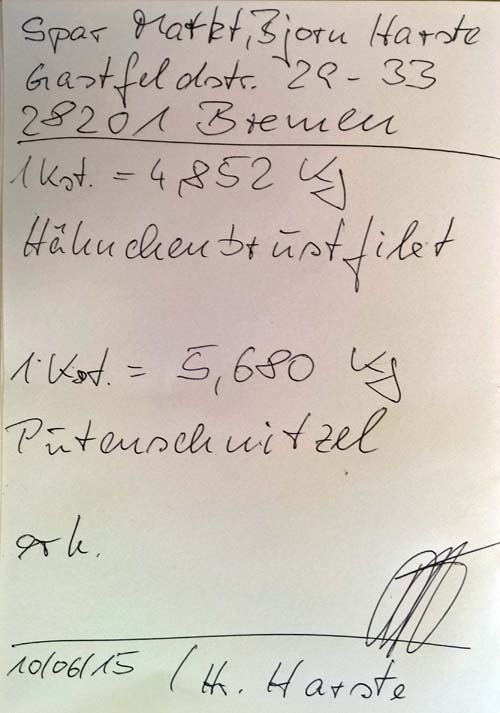 Spar Markt, Bjorn Harste
Gastfeldstr. 29-33
28201 Bremen
1 Kst. = 4,852 Kg
Hähnchenbrustfilet
1 Kst. = 5,680 Kg
Putenschnitzel
erh.
10/06/15 / Hr. Harste